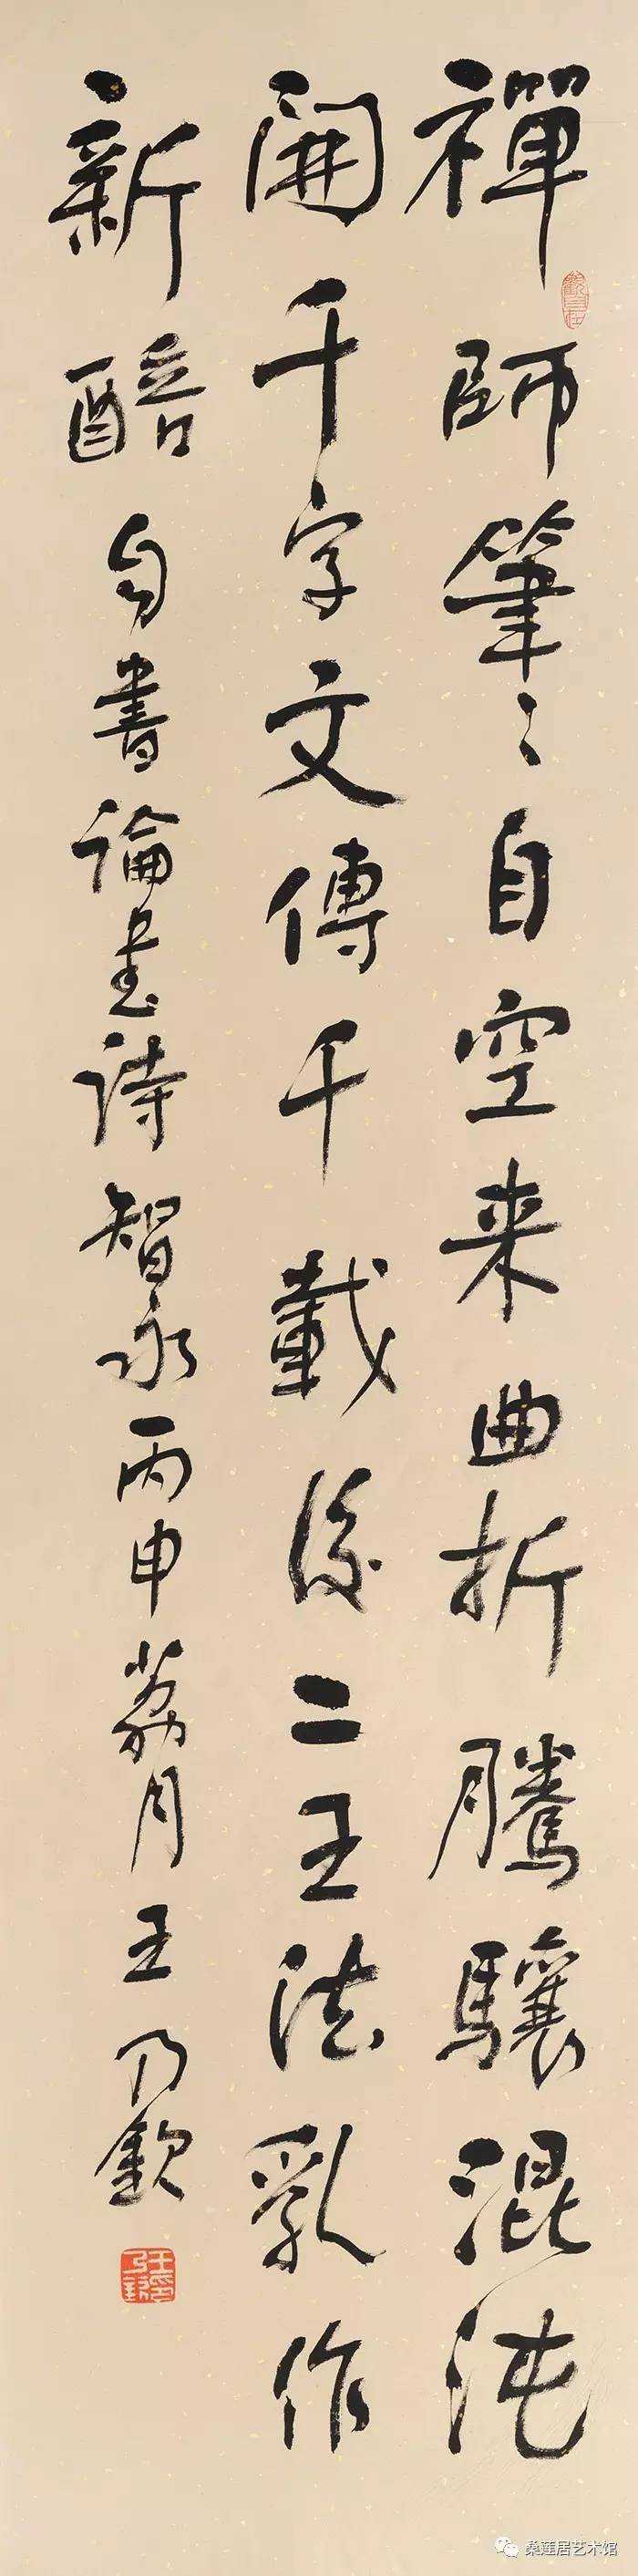 禪師筆〻自空来曲折騰驤混沌
開千字文傳千載後二王法乳作
新醅 自書論書詩智永丙申荔月王乃欽
觀自在
桑莲居艺术馆